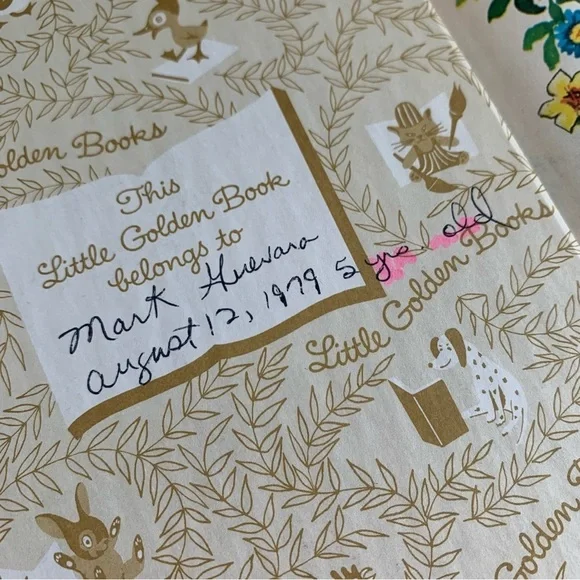 Golden Books
This
Little Golden Book
belongs to
Mark Guevara
August 12, 1979 5 yrs old
Little Golden Books
Golden